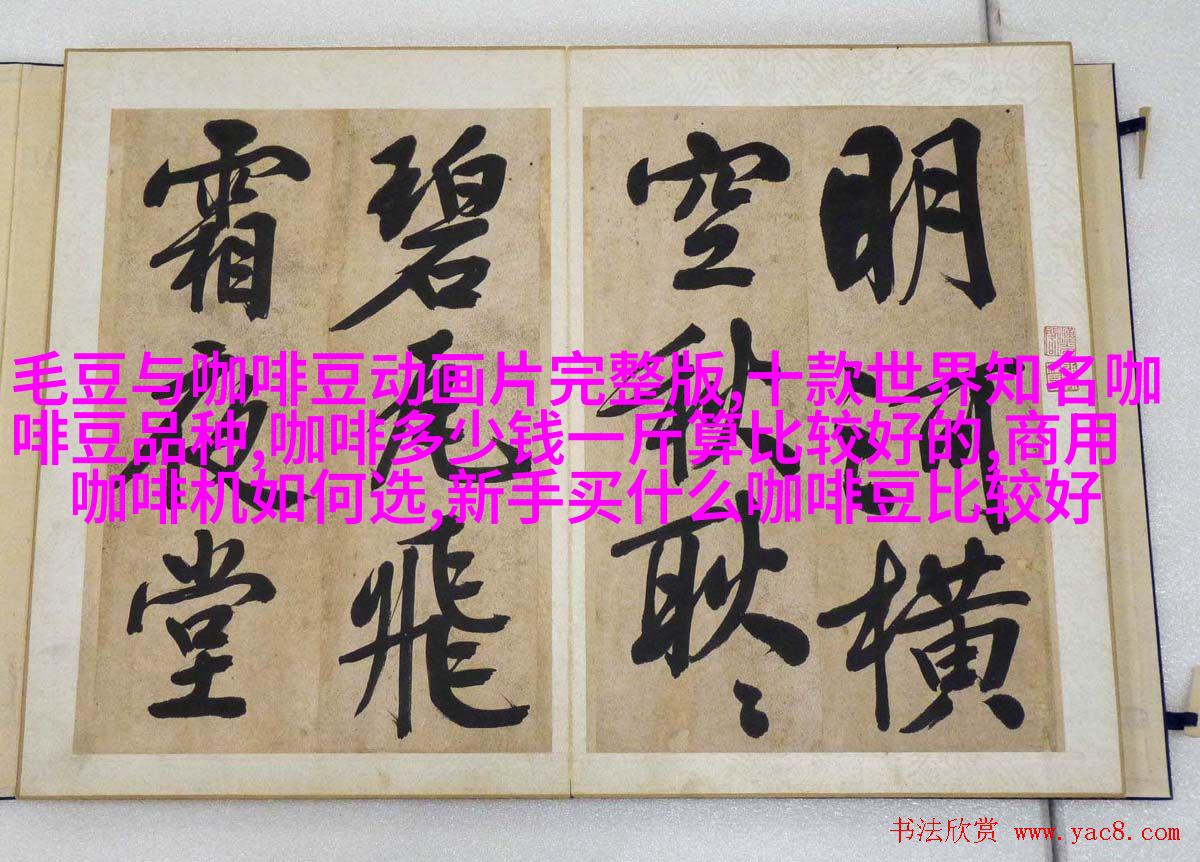 明河橫
空秋耿〻
碧瓦飛
霜夜堂
毛豆与咖啡豆动画片完整版,十款世界知名咖
啡豆品种,咖啡多少钱一斤算比较好的,商用
咖啡机如何选,新手买什么咖啡豆比较好
书法欣赏 www.yac8.com